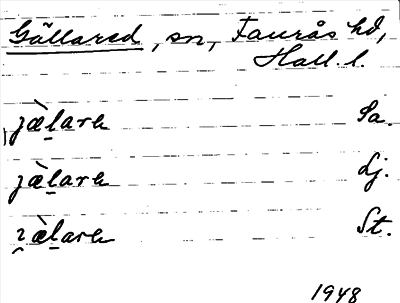 Gällared, sn, Faurås hd,
Hall. l.
jæ̀larɘ Sa.
jæ̀larɘ Lj.
ʒæ̀larɘ St.
1948